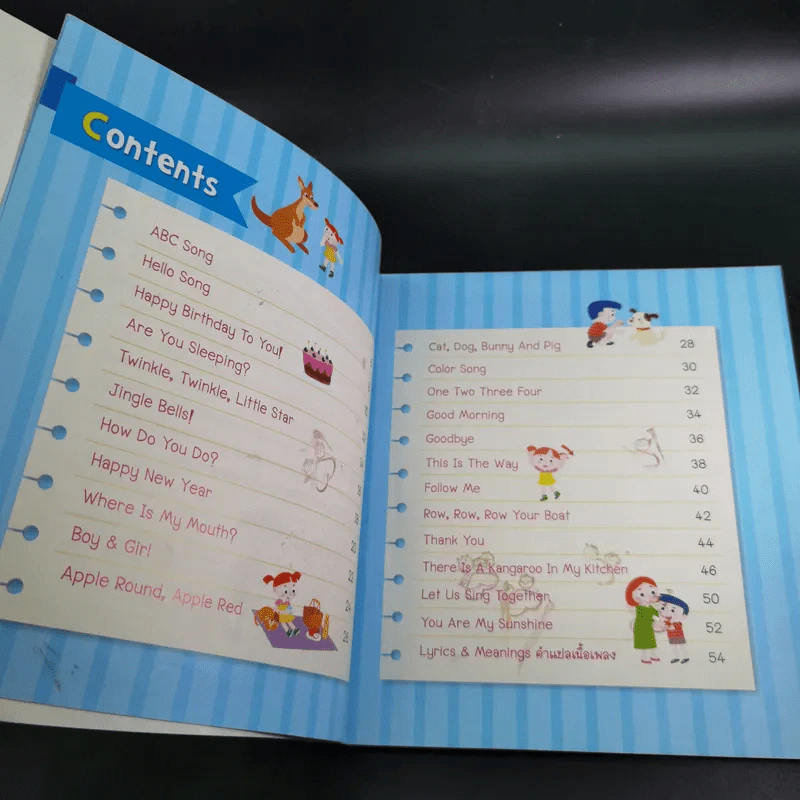 Contents
ABC Song
Hello Song
Happy Birthday To You!
Are You Sleeping?
Twinkle, Twinkle, Little Star
Jingle Bells!
How Do You Do?
Happy New Year
Where Is My Mouth?
Boy & Girl
Apple Round, Apple Red
Cat, Dog, Bunny And Pig 28
Color Song 30
One Two Three Four 32
Good Morning 34
Goodbye 36
This Is The Way 38
Follow Me 40
Row, Row, Row Your Boat 42
Thank You 44
There Is A Kangaroo In My Kitchen 46
Let Us Sing Together 50
You Are My Sunshine 52
Lyrics & Meanings คำแปลเนื้อเพลง 54